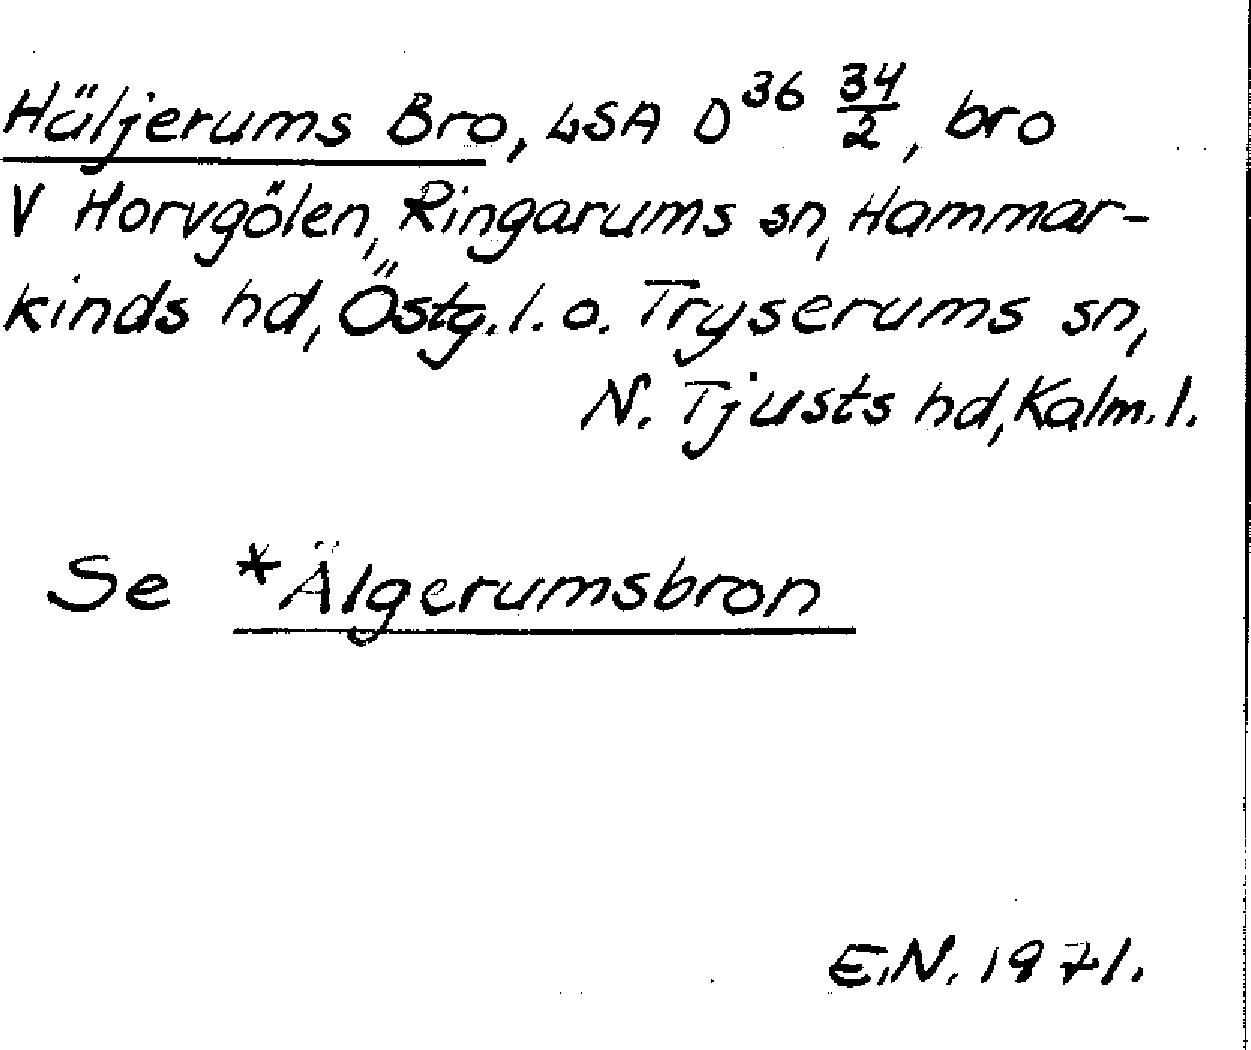 Häljerums Bro, LSA D³⁶ 34/2, bro
V Horvgölen, Ringarums sn, Hammar-
kinds hd, Östg. l. o. Tryserums sn,
N. Tjusts hd, Kalm. l.
Se *Älgerumsbron
E.N. 1971.